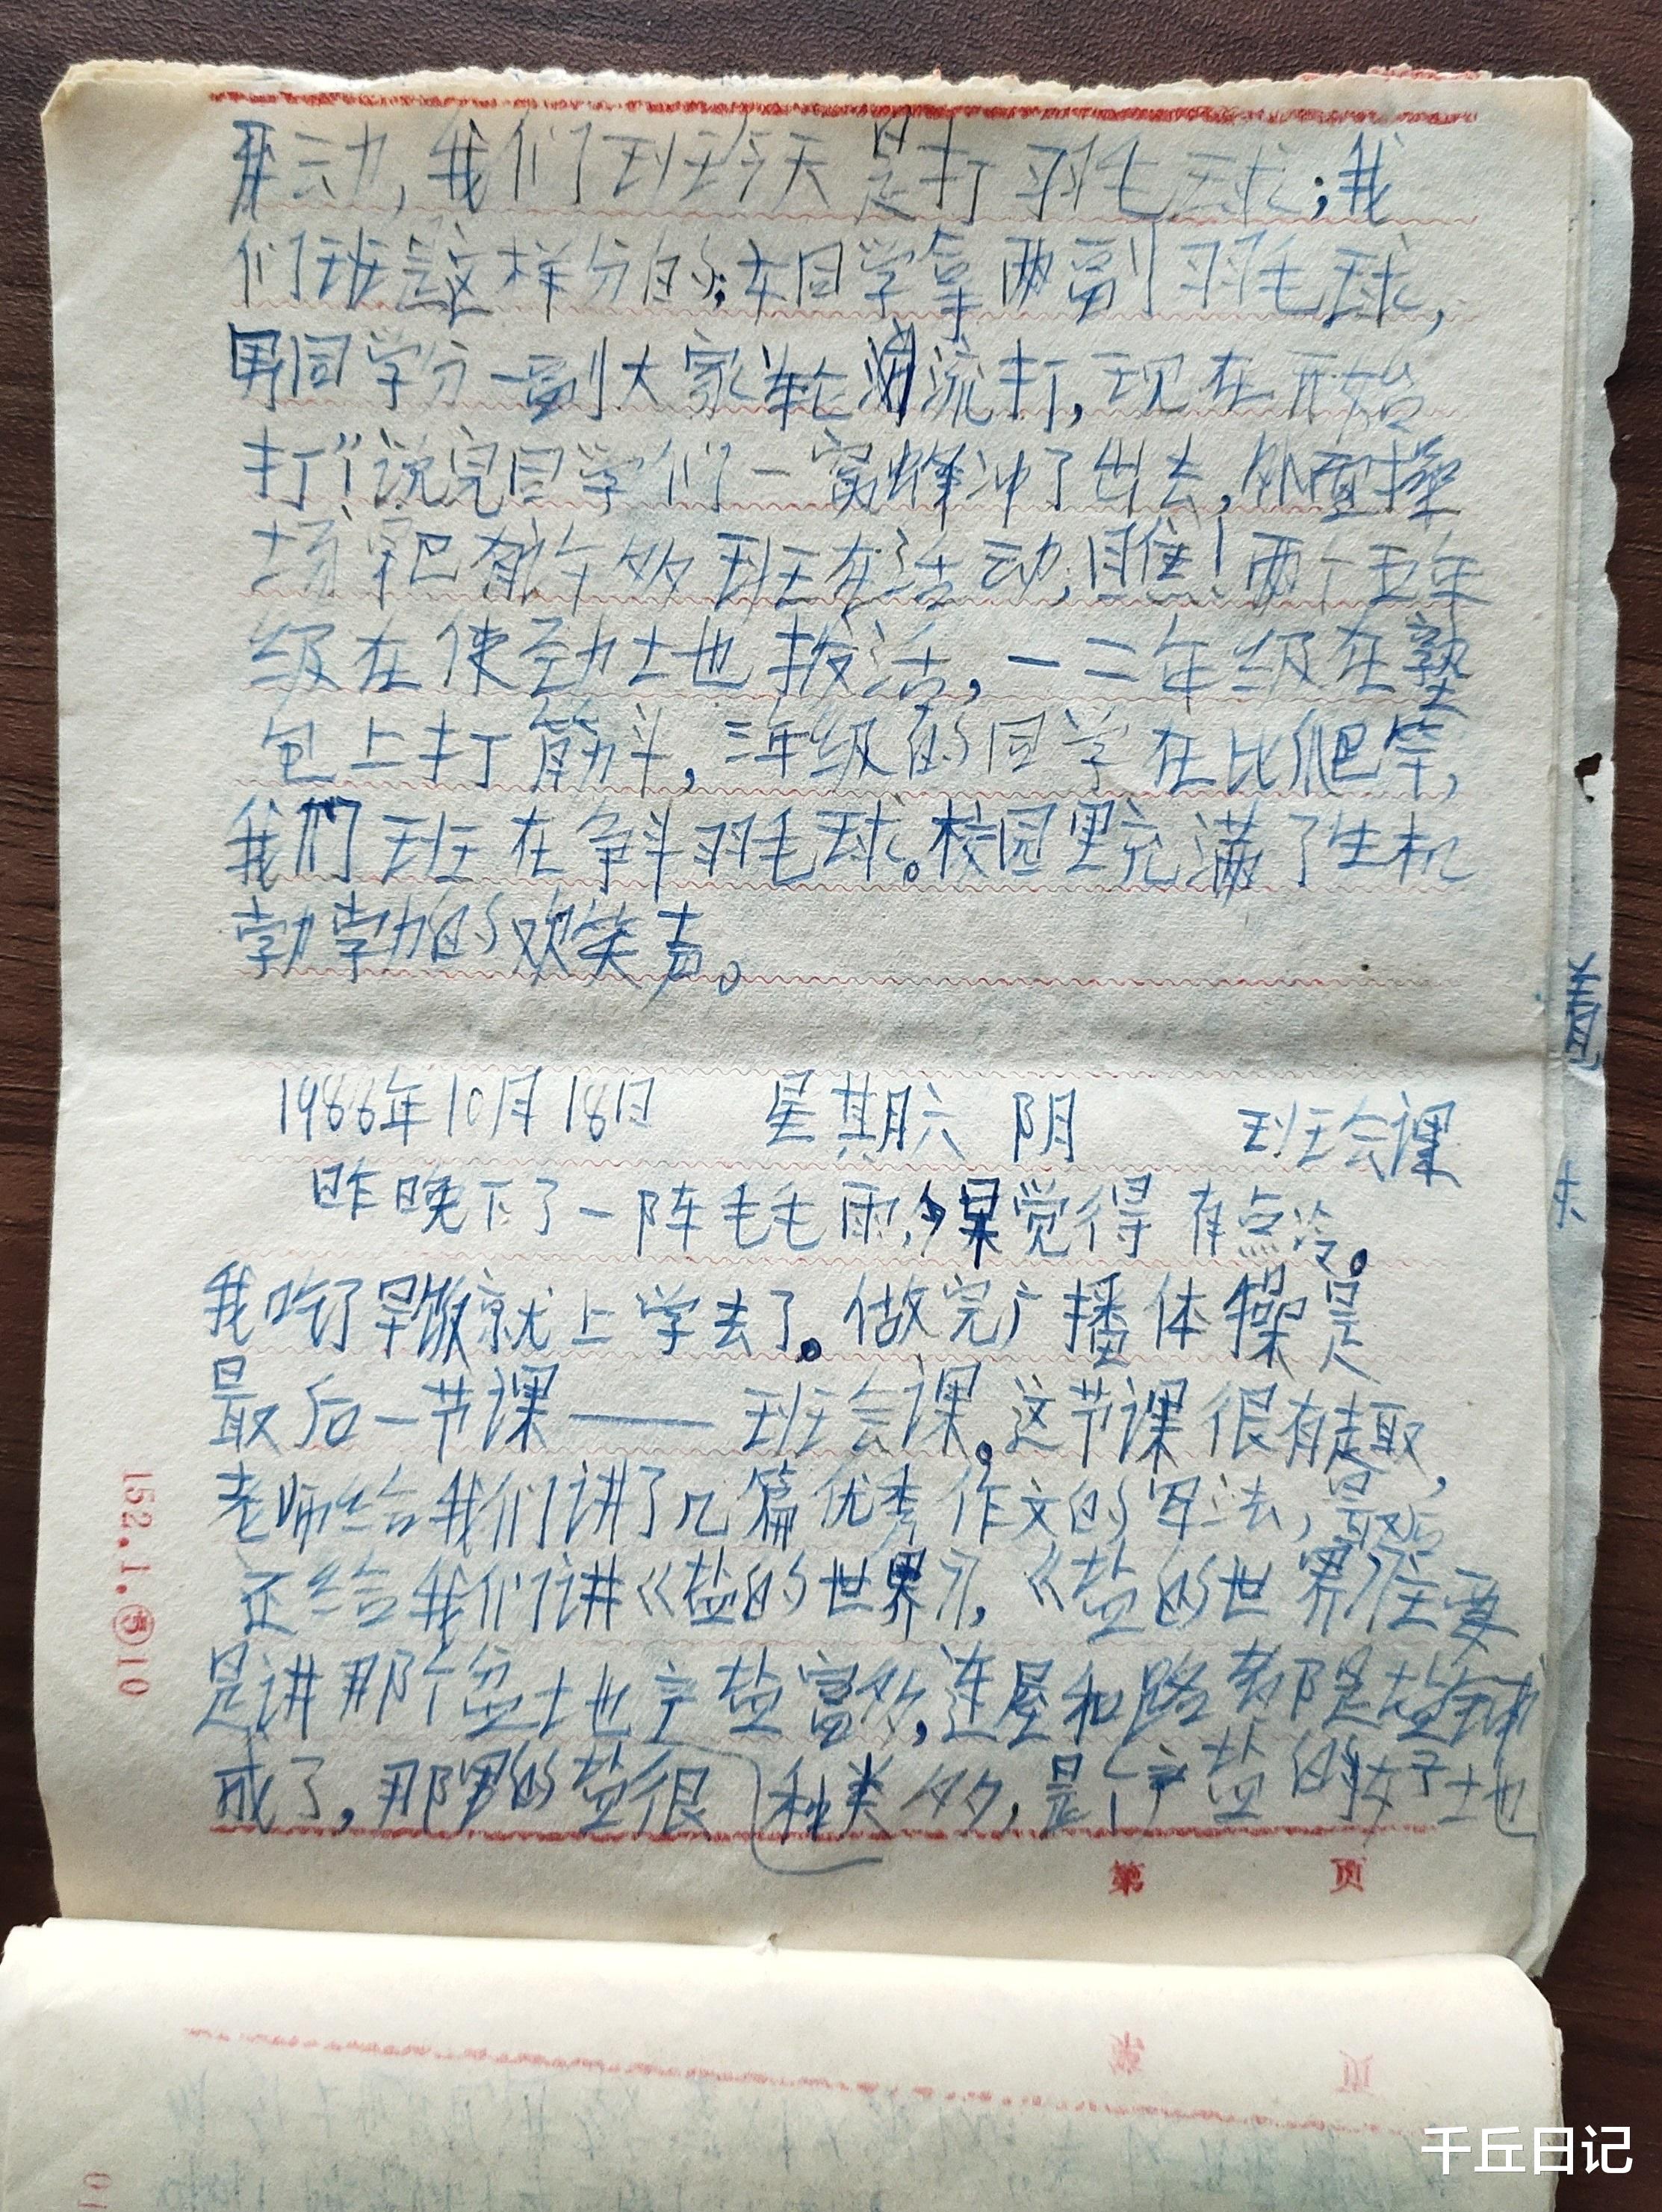 动,我们班今天是打羽毛球;我
们班是这样分的;女同学拿两副羽毛球,
男同学分一副大家轮流打,现在开始
打"!说完同学们一窝蜂冲了出去,外面操
场早已有许多班在活动,瞧!两个五年
级在使劲地拔活,一二年级在塾
包上打筋斗,三年级的同学在比爬竿,
我们班在争斗羽毛球。校园里充满了生机
勃勃的欢笑声。
1986年10月18日 星期六 阴 班会课
昨晚下了一阵毛毛雨,觉得有点冷。
我吃了早饭就上学去了。做完广播体操是
最后一节课——班会课。这节课很有趣,
老师给我们讲了几篇优秀作文的写法,最后
还给我们讲《盐的世界》,《盐的世界》主要
是讲那个盆地产盐富多,连屋和路都是盐铺
成了,那里的盐很种类多,是个产盐的好地
152.1.⑤10
第 页
千丘日记